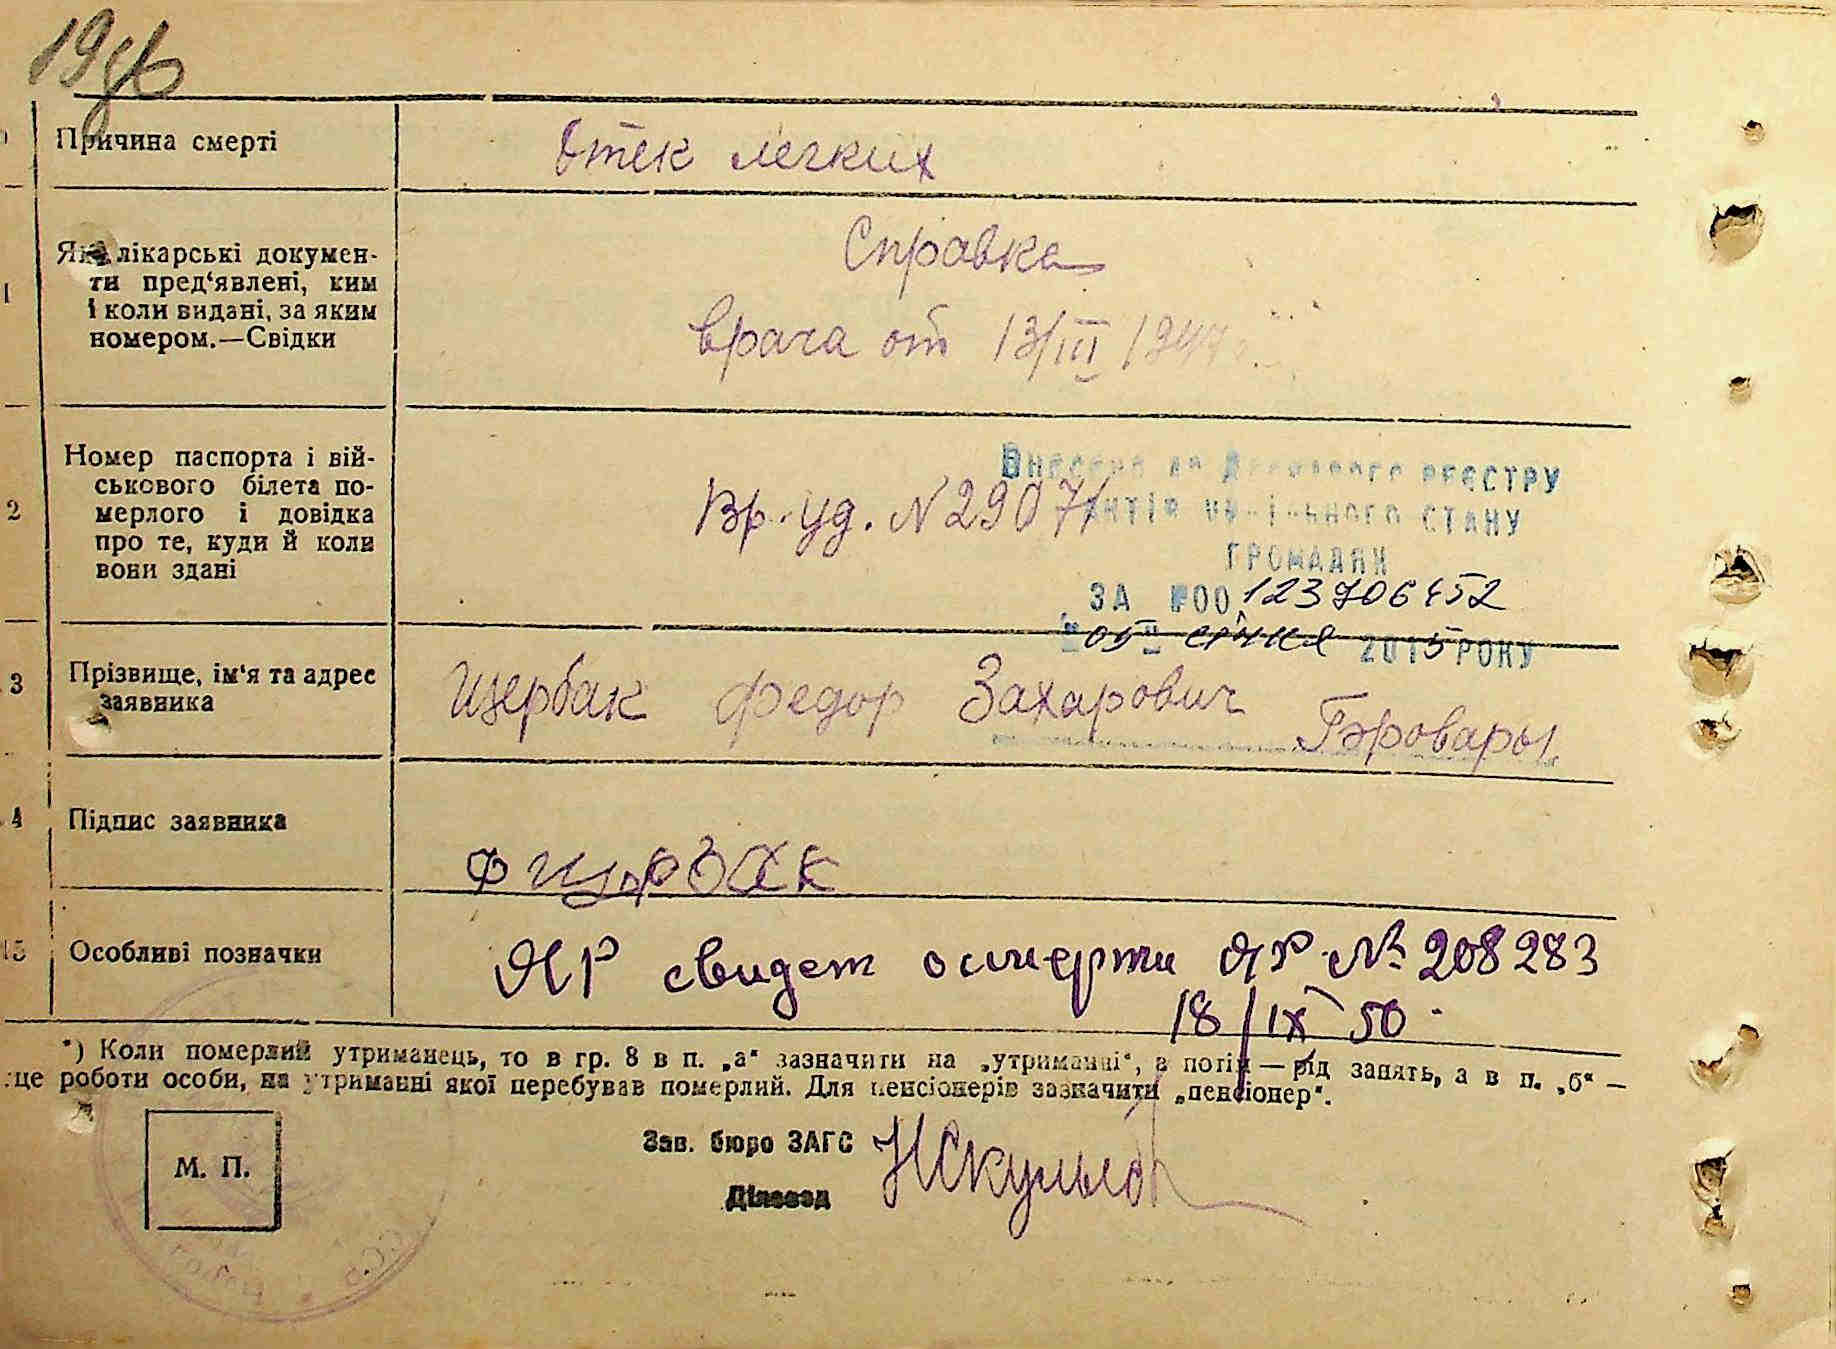 Причина смерті
Отек легких
1
Які лікарські докумен-
ти пред‘явлені, ким
і коли видані, за яким
номером.—Свідки
Справка
врача от 13/III 1947
2
Номер паспорта і вій-
ськового білета по-
мерлого і довідка
про те, куди й коли
вони здані
Вр. уд. N 29071
Внесено до Державного реєстру
актів цивільного стану
громадян
ЗА №00123706452
"05" січня 2015 РОКУ
3
Прізвище, ім‘я та адрес
заявника
Щербак Федор Захарович Бровары
4
Підпис заявника
15
Особливі позначки
ЯР свидет о смерти ЯР № 208283
18/IX 50
*) Коли померлий утриманець, то в гр. 8 в п. „а“ зазначити на „утриманні“, а потім — рід занять, а в п. „б“ —
це роботи особи, на утриманні якої перебував померлий. Для пенсіонерів зазначити „пенсіонер“.
М. П.
Зав. бюро ЗАГС
Діловод